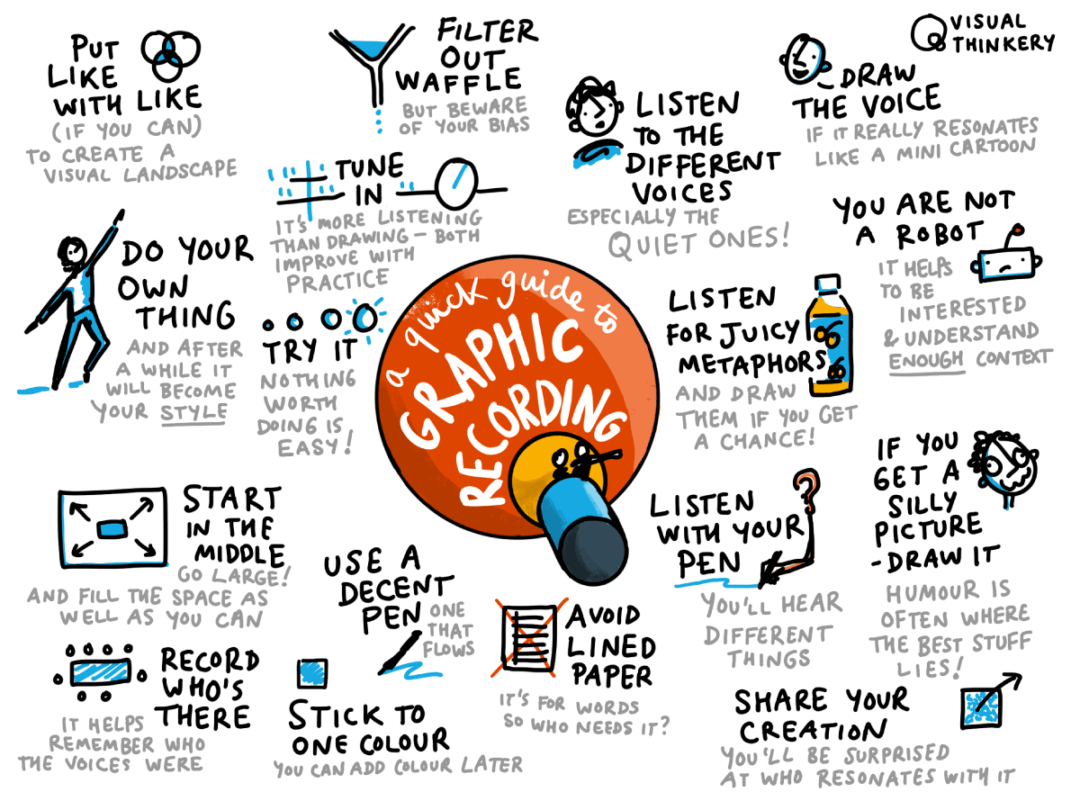 PUT
LIKE
WITH LIKE
(IF YOU CAN)
TO CREATE A
VISUAL LANDSCAPE
FILTER
OUT
WAFFLE
BUT BEWARE
OF YOUR BIAS
LISTEN
TO THE
DIFFERENT
VOICES
ESPECIALLY THE
QUIET ONES!
VISUAL
THINKERY
DRAW
THE VOICE
IF IT REALLY RESONATES
LIKE A MINI CARTOON
TUNE
IN
IT'S MORE LISTENING
THAN DRAWING – BOTH
IMPROVE WITH
PRACTICE
YOU ARE NOT
A ROBOT
IT HELPS
TO BE
INTERESTED
& UNDERSTAND
ENOUGH CONTEXT
DO YOUR
OWN
THING
AND AFTER
A WHILE IT
WILL BECOME
YOUR STYLE
TRY IT
NOTHING
WORTH
DOING IS
EASY!
a quick guide to
GRAPHIC
RECORDING
LISTEN
FOR JUICY
METAPHORS
AND DRAW
THEM IF YOU GET
A CHANCE!
IF YOU
GET A
SILLY
PICTURE
-DRAW IT
HUMOUR IS
OFTEN WHERE
THE BEST STUFF
LIES!
START
IN THE
MIDDLE
GO LARGE!
AND FILL THE SPACE AS
WELL AS YOU CAN
LISTEN
WITH YOUR
PEN
YOU'LL HEAR
DIFFERENT
THINGS
USE A
DECENT
PEN
ONE
THAT
FLOWS
AVOID
LINED
PAPER
IT'S FOR WORDS
SO WHO NEEDS IT?
RECORD
WHO'S
THERE
IT HELPS
REMEMBER WHO
THE VOICES WERE
STICK TO
ONE COLOUR
YOU CAN ADD COLOUR LATER
SHARE YOUR
CREATION
YOU'LL BE SURPRISED
AT WHO RESONATES WITH IT